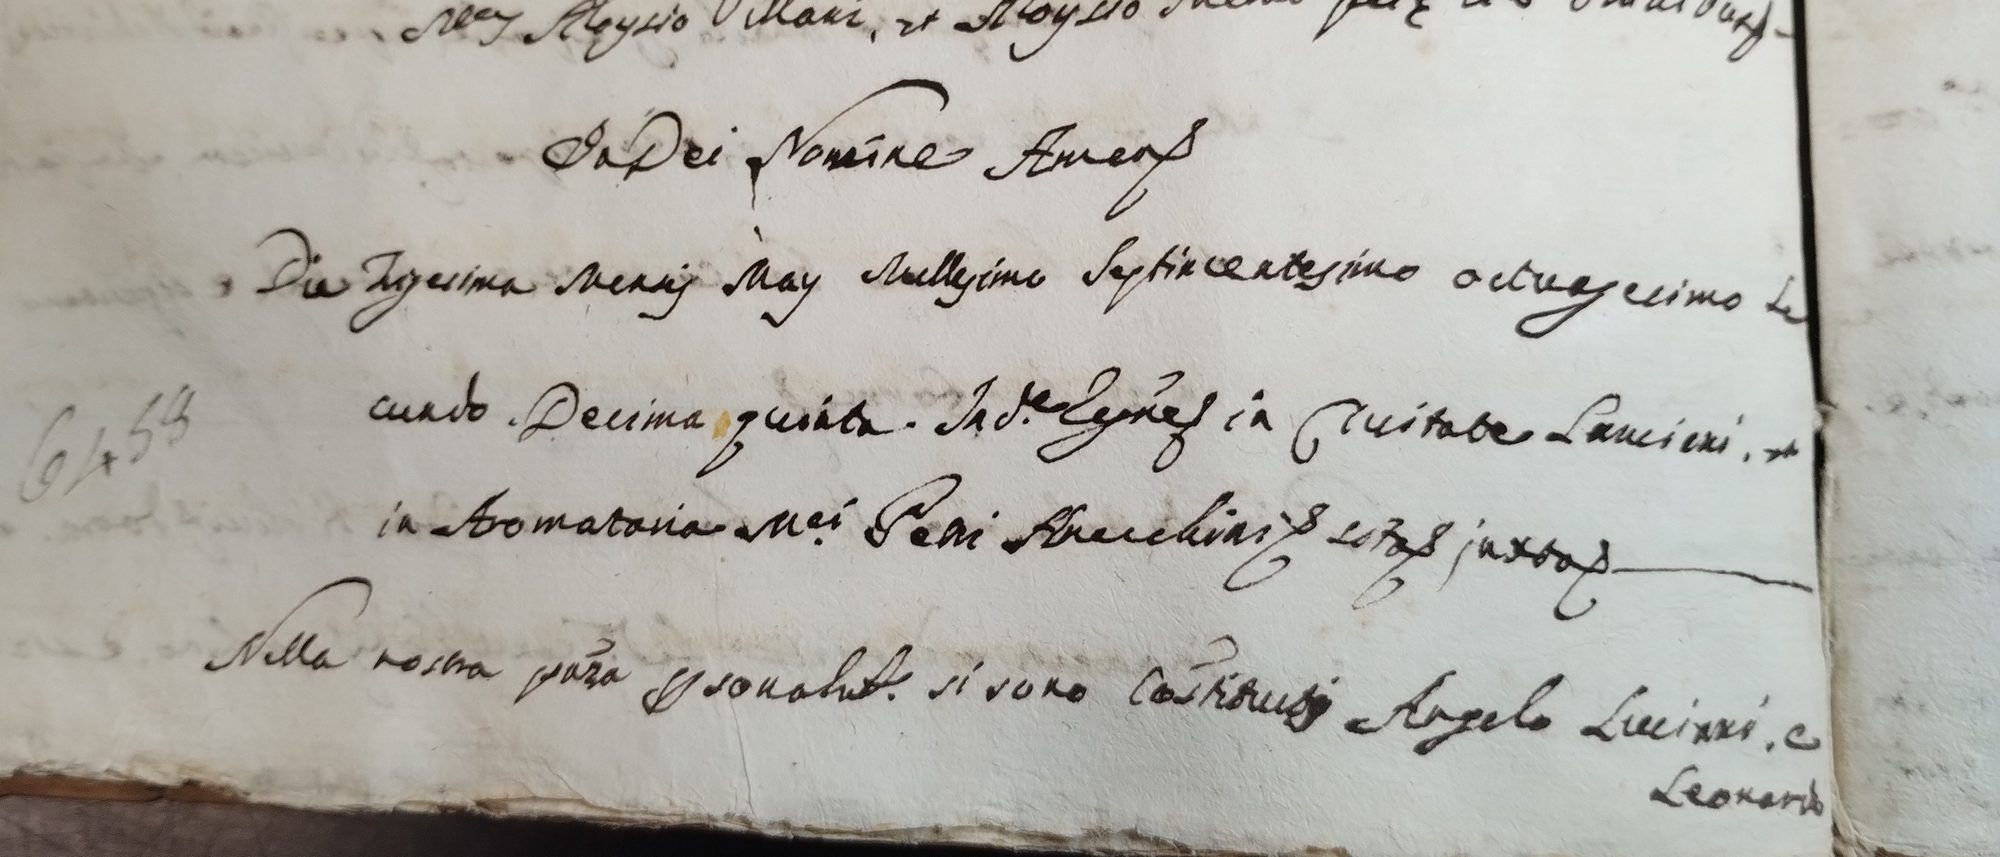 Aloysio Villani, et Aloysio
In Dei Nomine Amen
Die Trigesima Mensis May Millesimo Septincentesimo octuagecimo Se
cundo. Decima quinta. Ind.e in Civitate Lanciani, et
in Aromataria M.ci Petri sita juxta
Nella nostra pñza psonalm.te si sono Cõstituti Angelo Luciani, e
Leonardo
6458